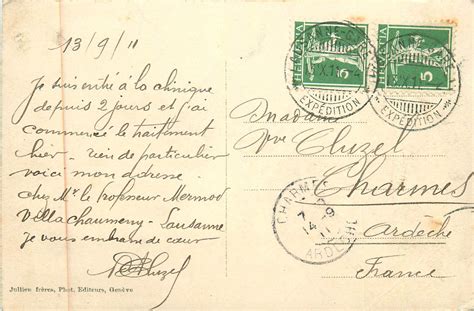 13/9/11
Je suis entré à la clinique
depuis 2 jours et j'ai
commencé le traitement
hier - rien de particulier
voici mon adresse
chez Mr le Professeur Mermod
Villa Chaumeny - Lausanne
je vous embrasse de cœur
Cluzel
Jullien frères, Phot. Editeurs, Genève
HELVETIA
5
HELVETIA
5
EXPÉDITION
EXPÉDITION
Madame
Vve Cluzel
Charmes
Ardèche
France
CHARMES
14 - 9
11
ARDECHE